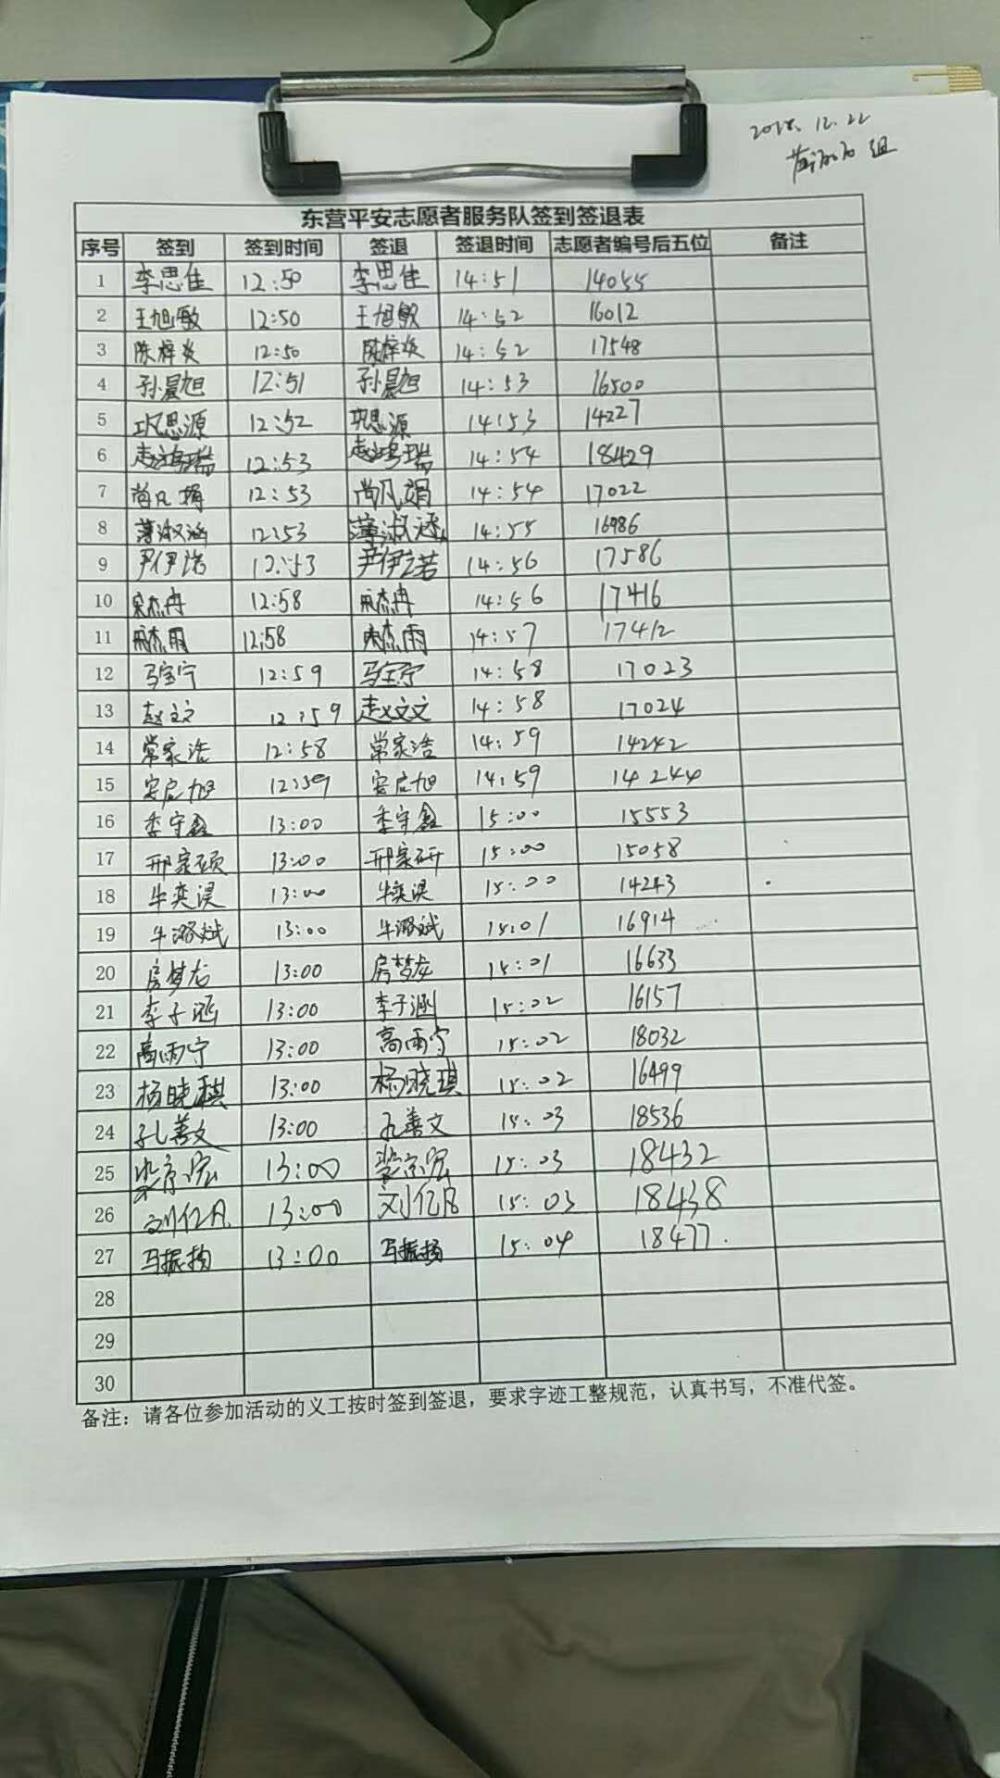 12.22
组
东营平安志愿者服务队签到签退表
序号 签到 签到时间 签退 签退时间 志愿者编号后五位 备注
1 李思佳 12:50 李思佳 14:51 14055
2 王旭敏 12:50 王旭敏 14:52 16012
3 陈梓炎 12:50 陈梓炎 14:52 17548
4 孙晨旭 12:51 孙晨旭 14:53 16500
5 巩思源 12:52 巩思源 14:53 14227
6 赵鸿瑞 12:53 赵鸿瑞 14:54 18429
7 尚凡娟 12:53 尚凡娟 14:54 17022
8 薄淑涵 12:53 薄淑涵 14:55 16986
9 尹伊诺 12:53 尹伊诺 14:56 17586
10 12:58 14:56 17416
11 12:58 14:57 17412
12 马宝宁 12:59 马宝宁 14:58 17023
13 赵文文 12:59 赵文文 14:58 17024
14 常家浩 12:58 常家浩 14:59 14242
15 安启旭 12:59 安启旭 14:59 14244
16 李宇鑫 13:00 李宇鑫 15:00 15553
17 邢家硕 13:00 邢家研 15:00 15058
18 牛奕淏 13:00 牛奕淏 15:00 14243
19 牛潞斌 13:00 牛潞斌 15:01 16914
20 房梦龙 13:00 房梦龙 15:01 16633
21 李子涵 13:00 李子涵 15:02 16157
22 高雨宁 13:00 高雨宁 15:02 18032
23 杨晓琪 13:00 杨晓琪 15:02 16499
24 孔善文 13:00 孔善文 15:03 18536
25 13:00 15:03 18432
26 刘亿凡 13:00 刘亿凡 15:03 18438
27 马振扬 13:00 马振扬 15:04 18477.
28
29
30
备注：请各位参加活动的义工按时签到签退，要求字迹工整规范，认真书写，不准代签。